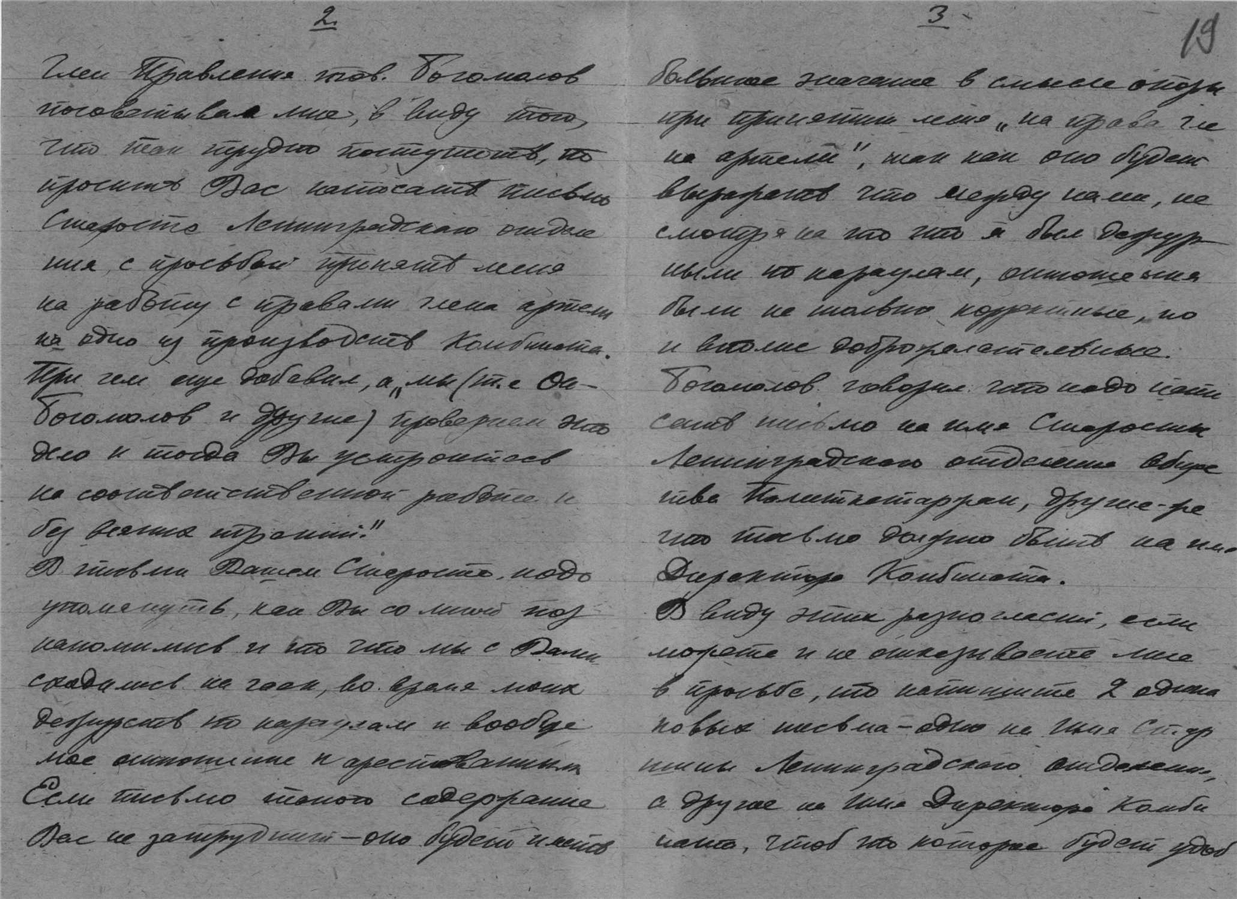 2.
Член Правления тов. Богомолов
посоветывал мне, в виду того,
что там трудно поступить, то
просить Вас написать письмо
Старосте Ленинградского отделе
ния, с просьбой принять меня
на работу с правами члена артели
на одно из производств Комбината.
При чем еще добавил, а „мы (т.е Он-
Богомолов и другие) проверим это
дело и тогда Вы устроитесь
на соответственной работе и
без всяких трений."
В письме Вашем Старосте, надо
упомянуть, как Вы со мной поз-
накомились и то что мы с Вами
сходились на чаек, во время моих
дежурств по караулам и вообще
мое отношение к арестованным
Если письмо такого содержание
Вас не затруднит – оно будет иметь
3
19
большое значение в смысле опоры
при принятии меня „на права чле
на артели", так как оно будет
выражать что между нами, не
смотря на то что я был дежур-
ным по караулам, отношения
были не только корректные, но
и вполне доброжелательные.
Богомолов говорил что надо напи
сать письмо на имя Старосты
Ленинградского отделения Обще
ства Политкаторжан, другие-же
что письмо должно быть на имя
Директора Комбината.
В виду этих разногласий, если
можете и не отказываете мне
в просьбе, то напишите 2 одина
ковых письма – одно на имя Стар
шины Ленинградского отделения,
а другое на имя Директора Комби
ната, чтоб то которое будет удоб